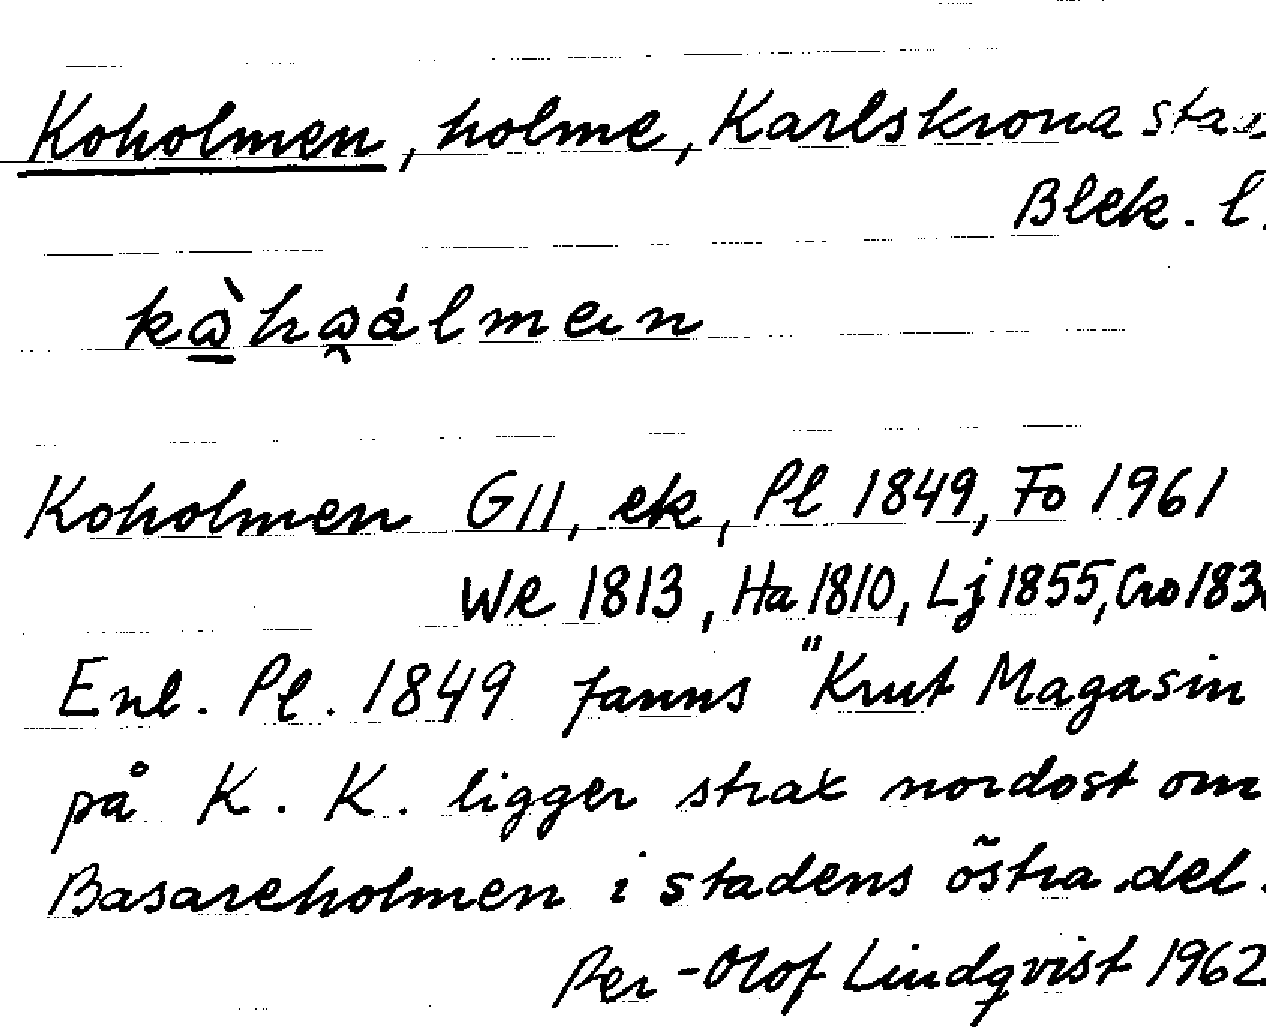 Koholmen, holme, Karlskrona stad
Blek. l.
Koholmen GII, ek, Pl 1849, Fo 1961
We 1813, Ha 1810, Lj 1855, Gro 183
Enl. Pl. 1849 fanns "Krut Magasin
på K. K. ligger strax nordost om
Basareholmen i stadens östra del.
Per-Olof Lindqvist 1962